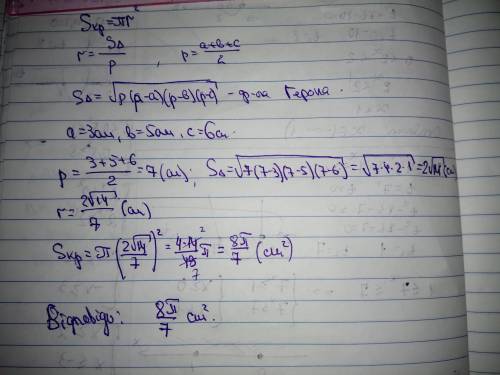 Sкр = πr²
r = SΔ/p , p = (a+b+c)/2
SΔ = √(p(p-a)(p-b)(p-c)) - ф-ла Герона.
a=3см, b=5см, c=6см.
p = (3+5+6)/2 = 7 (см); SΔ = √(7(7-3)(7-5)(7-6)) = √(7·4·2·1) = 2√14 (см
r = 2√14/7 (см)
Sкр = π(2√14/7)² = 4·14/49 π = 8π/7 (см²)
Відповідь: 8π/7 см².